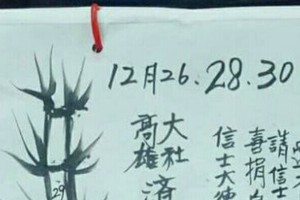 12月26.28.30
大社
高雄
済
信士大德
喜捐
請信士
29